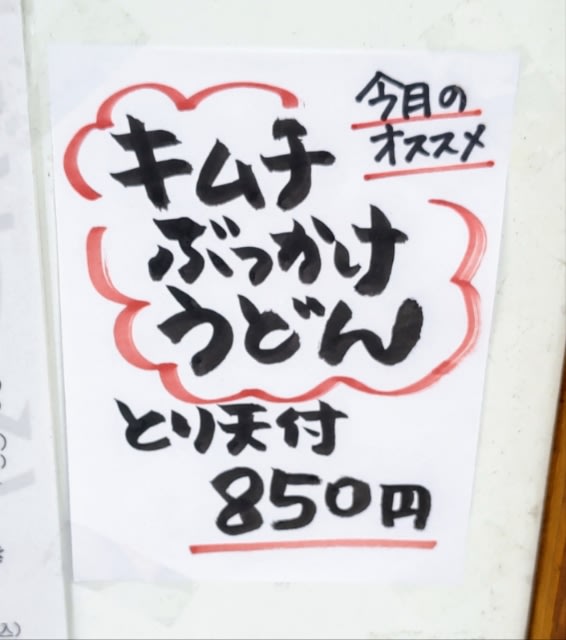 今月の
オススメ
キムチ
ぶっかけ
うどん
とり天付
850円